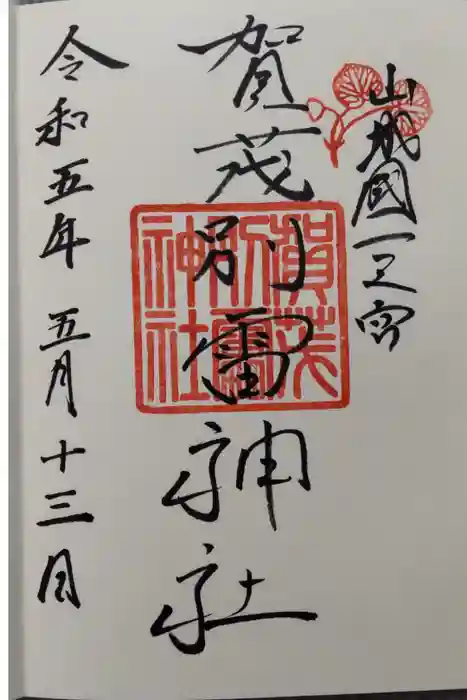 山城國一之宮
賀茂別雷神社
賀茂別雷神社
令和五年五月十三日